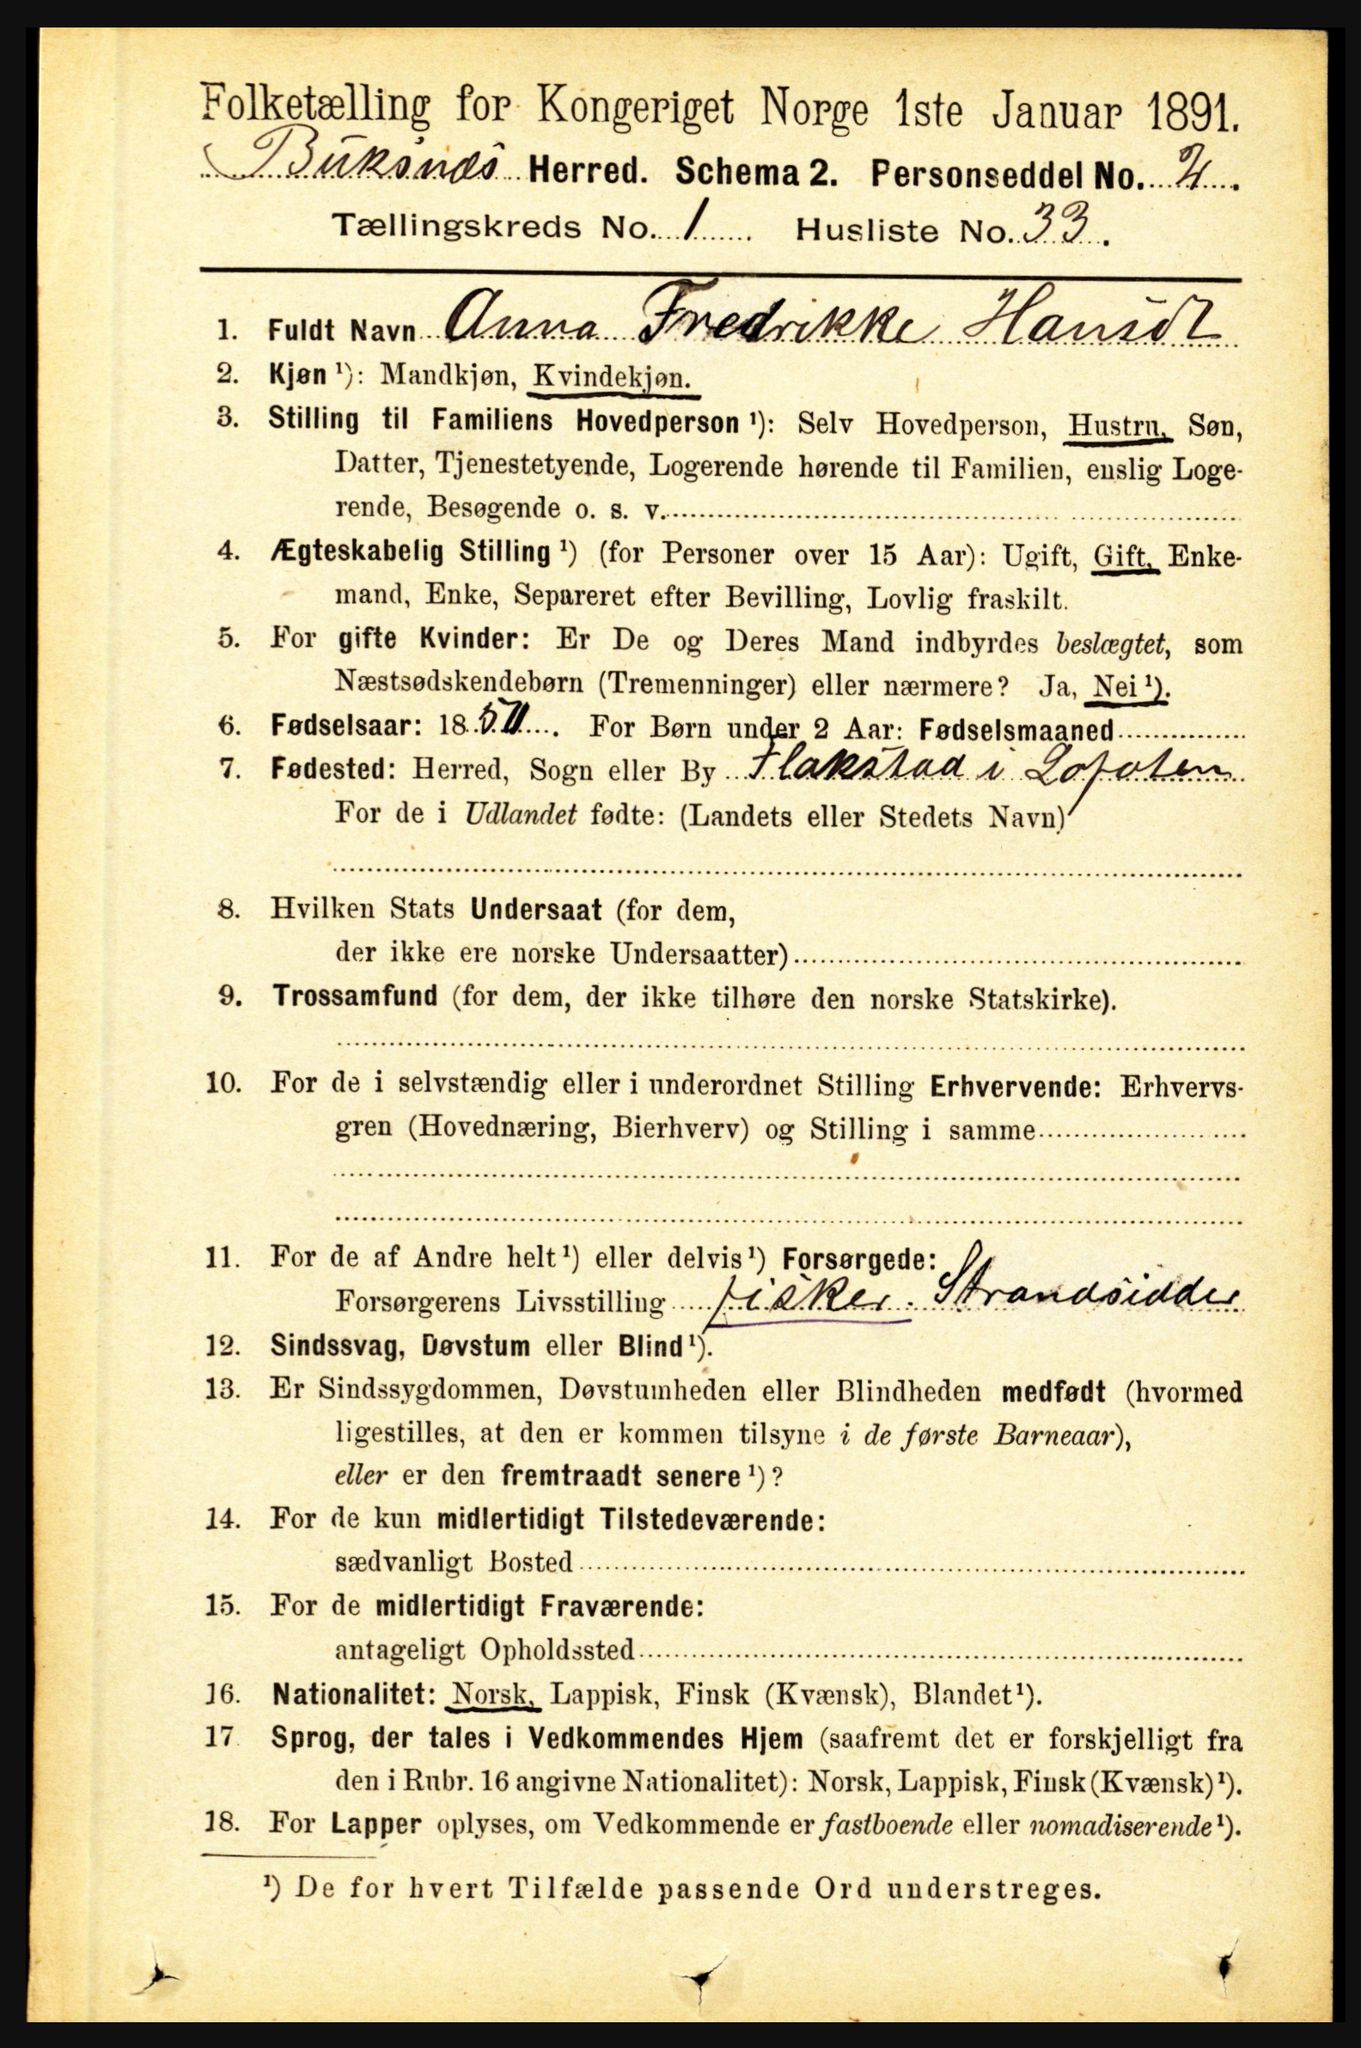 Folketælling for Kongeriget Norge 1ste Januar 1891.
Buksnæs Herred. Schema 2. Personseddel No. 2.
Tællingskreds No. 1 Husliste No. 33.
1. Fuldt Navn Anna Fredrikke Hansdt
2. Kjøn ¹): Mandkjøn, Kvindekjøn.
3. Stilling til Familiens Hovedperson ¹): Selv Hovedperson, Hustru, Søn,
Datter, Tjenestetyende, Logerende hørende til Familien, enslig Loge-
rende, Besøgende o. s. v.
4. Ægteskabelig Stilling ¹) (for Personer over 15 Aar): Ugift, Gift, Enke-
mand, Enke, Separeret efter Bevilling, Lovlig fraskilt.
5. For gifte Kvinder: Er De og Deres Mand indbyrdes beslægtet, som
Næstsødskendebørn (Tremenninger) eller nærmere? Ja, Nei ¹).
6. Fødselsaar: 18 For Børn under 2 Aar: Fødselsmaaned
7. Fødested: Herred, Sogn eller By Flakstad i Lofoten
For de i Udlandet fødte: (Landets eller Stedets Navn)
8. Hvilken Stats Undersaat (for dem,
der ikke ere norske Undersaatter)
9. Trossamfund (for dem, der ikke tilhøre den norske Statskirke).
10. For de i selvstændig eller i underordnet Stilling Erhvervende: Erhvervs-
gren (Hovednæring, Bierhverv) og Stilling i samme
11. For de af Andre helt ¹) eller delvis ¹) Forsørgede:
Forsørgerens Livsstilling fisker. Strandsidder
12. Sindssvag, Døvstum eller Blind ¹).
13. Er Sindssygdommen, Døvstumheden eller Blindheden medfødt (hvormed
ligestilles, at den er kommen tilsyne i de første Barneaar),
eller er den fremtraadt senere ¹)?
14. For de kun midlertidigt Tilstedeværende:
sædvanligt Bosted
15. For de midlertidigt Fraværende:
antageligt Opholdssted
16. Nationalitet: Norsk, Lappisk, Finsk (Kvænsk), Blandet ¹).
17 Sprog, der tales i Vedkommendes Hjem (saafremt det er forskjelligt fra
den i Rubr. 16 angivne Nationalitet): Norsk, Lappisk, Finsk (Kvænsk) ¹).
18. For Lapper oplyses, om Vedkommende er fastboende eller nomadiserende ¹).
¹) De for hvert Tilfælde passende Ord understreges.